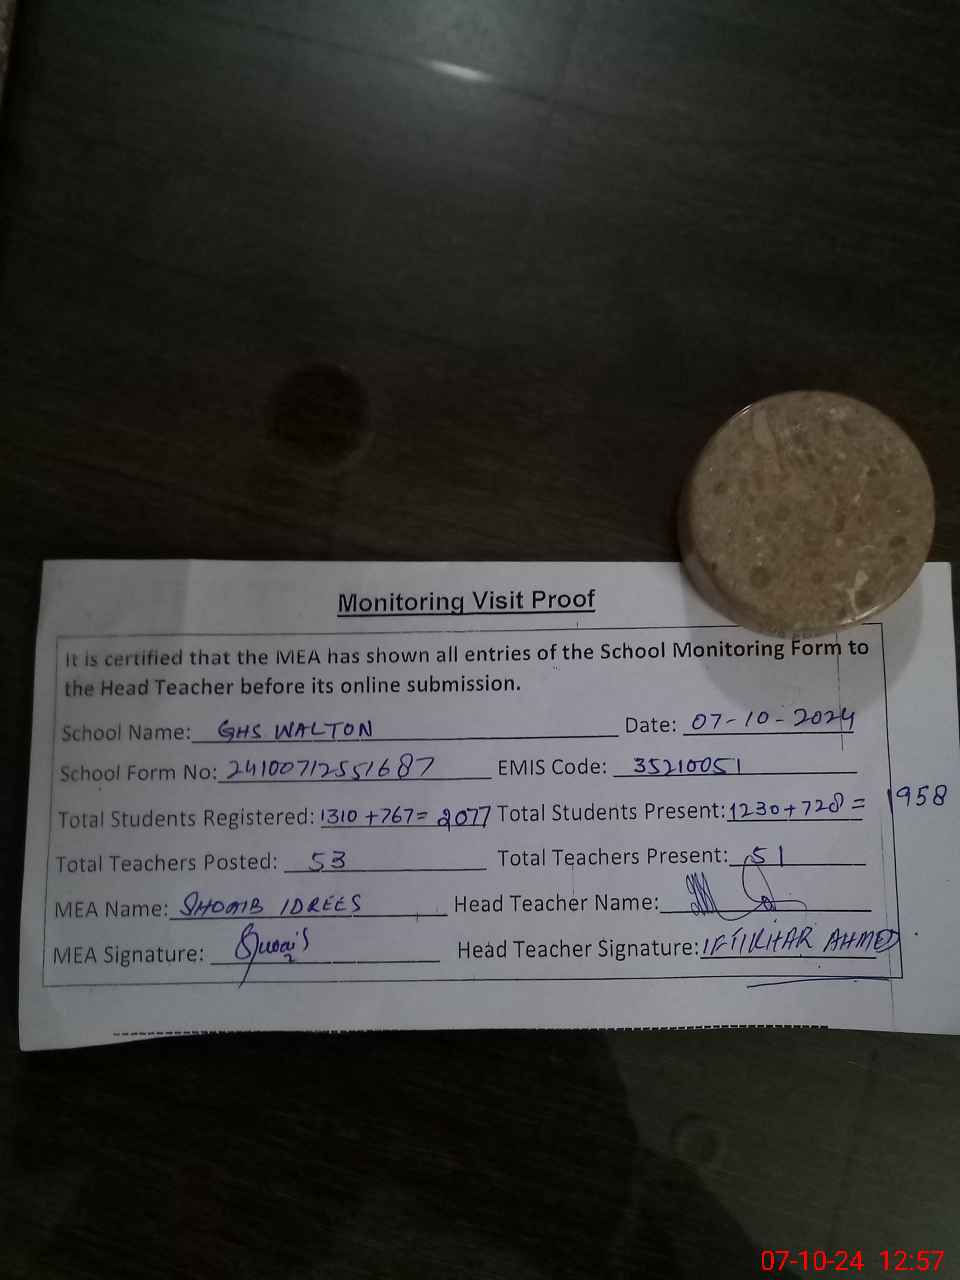 Monitoring Visit Proof
It is certified that the MEA has shown all entries of the School Monitoring Form to
the Head Teacher before its online submission.
School Name: GHS WALTON Date: 07-10-2024
School Form No: 24100712551687 EMIS Code: 35210051
Total Students Registered: 1310+767=2077 Total Students Present: 1230+728= 1958
Total Teachers Posted: 53 Total Teachers Present: 51
MEA Name: SHOAIB IDREES Head Teacher Name:
MEA Signature: Head Teacher Signature: IFTIKHAR AHMED
07-10-24 12:57